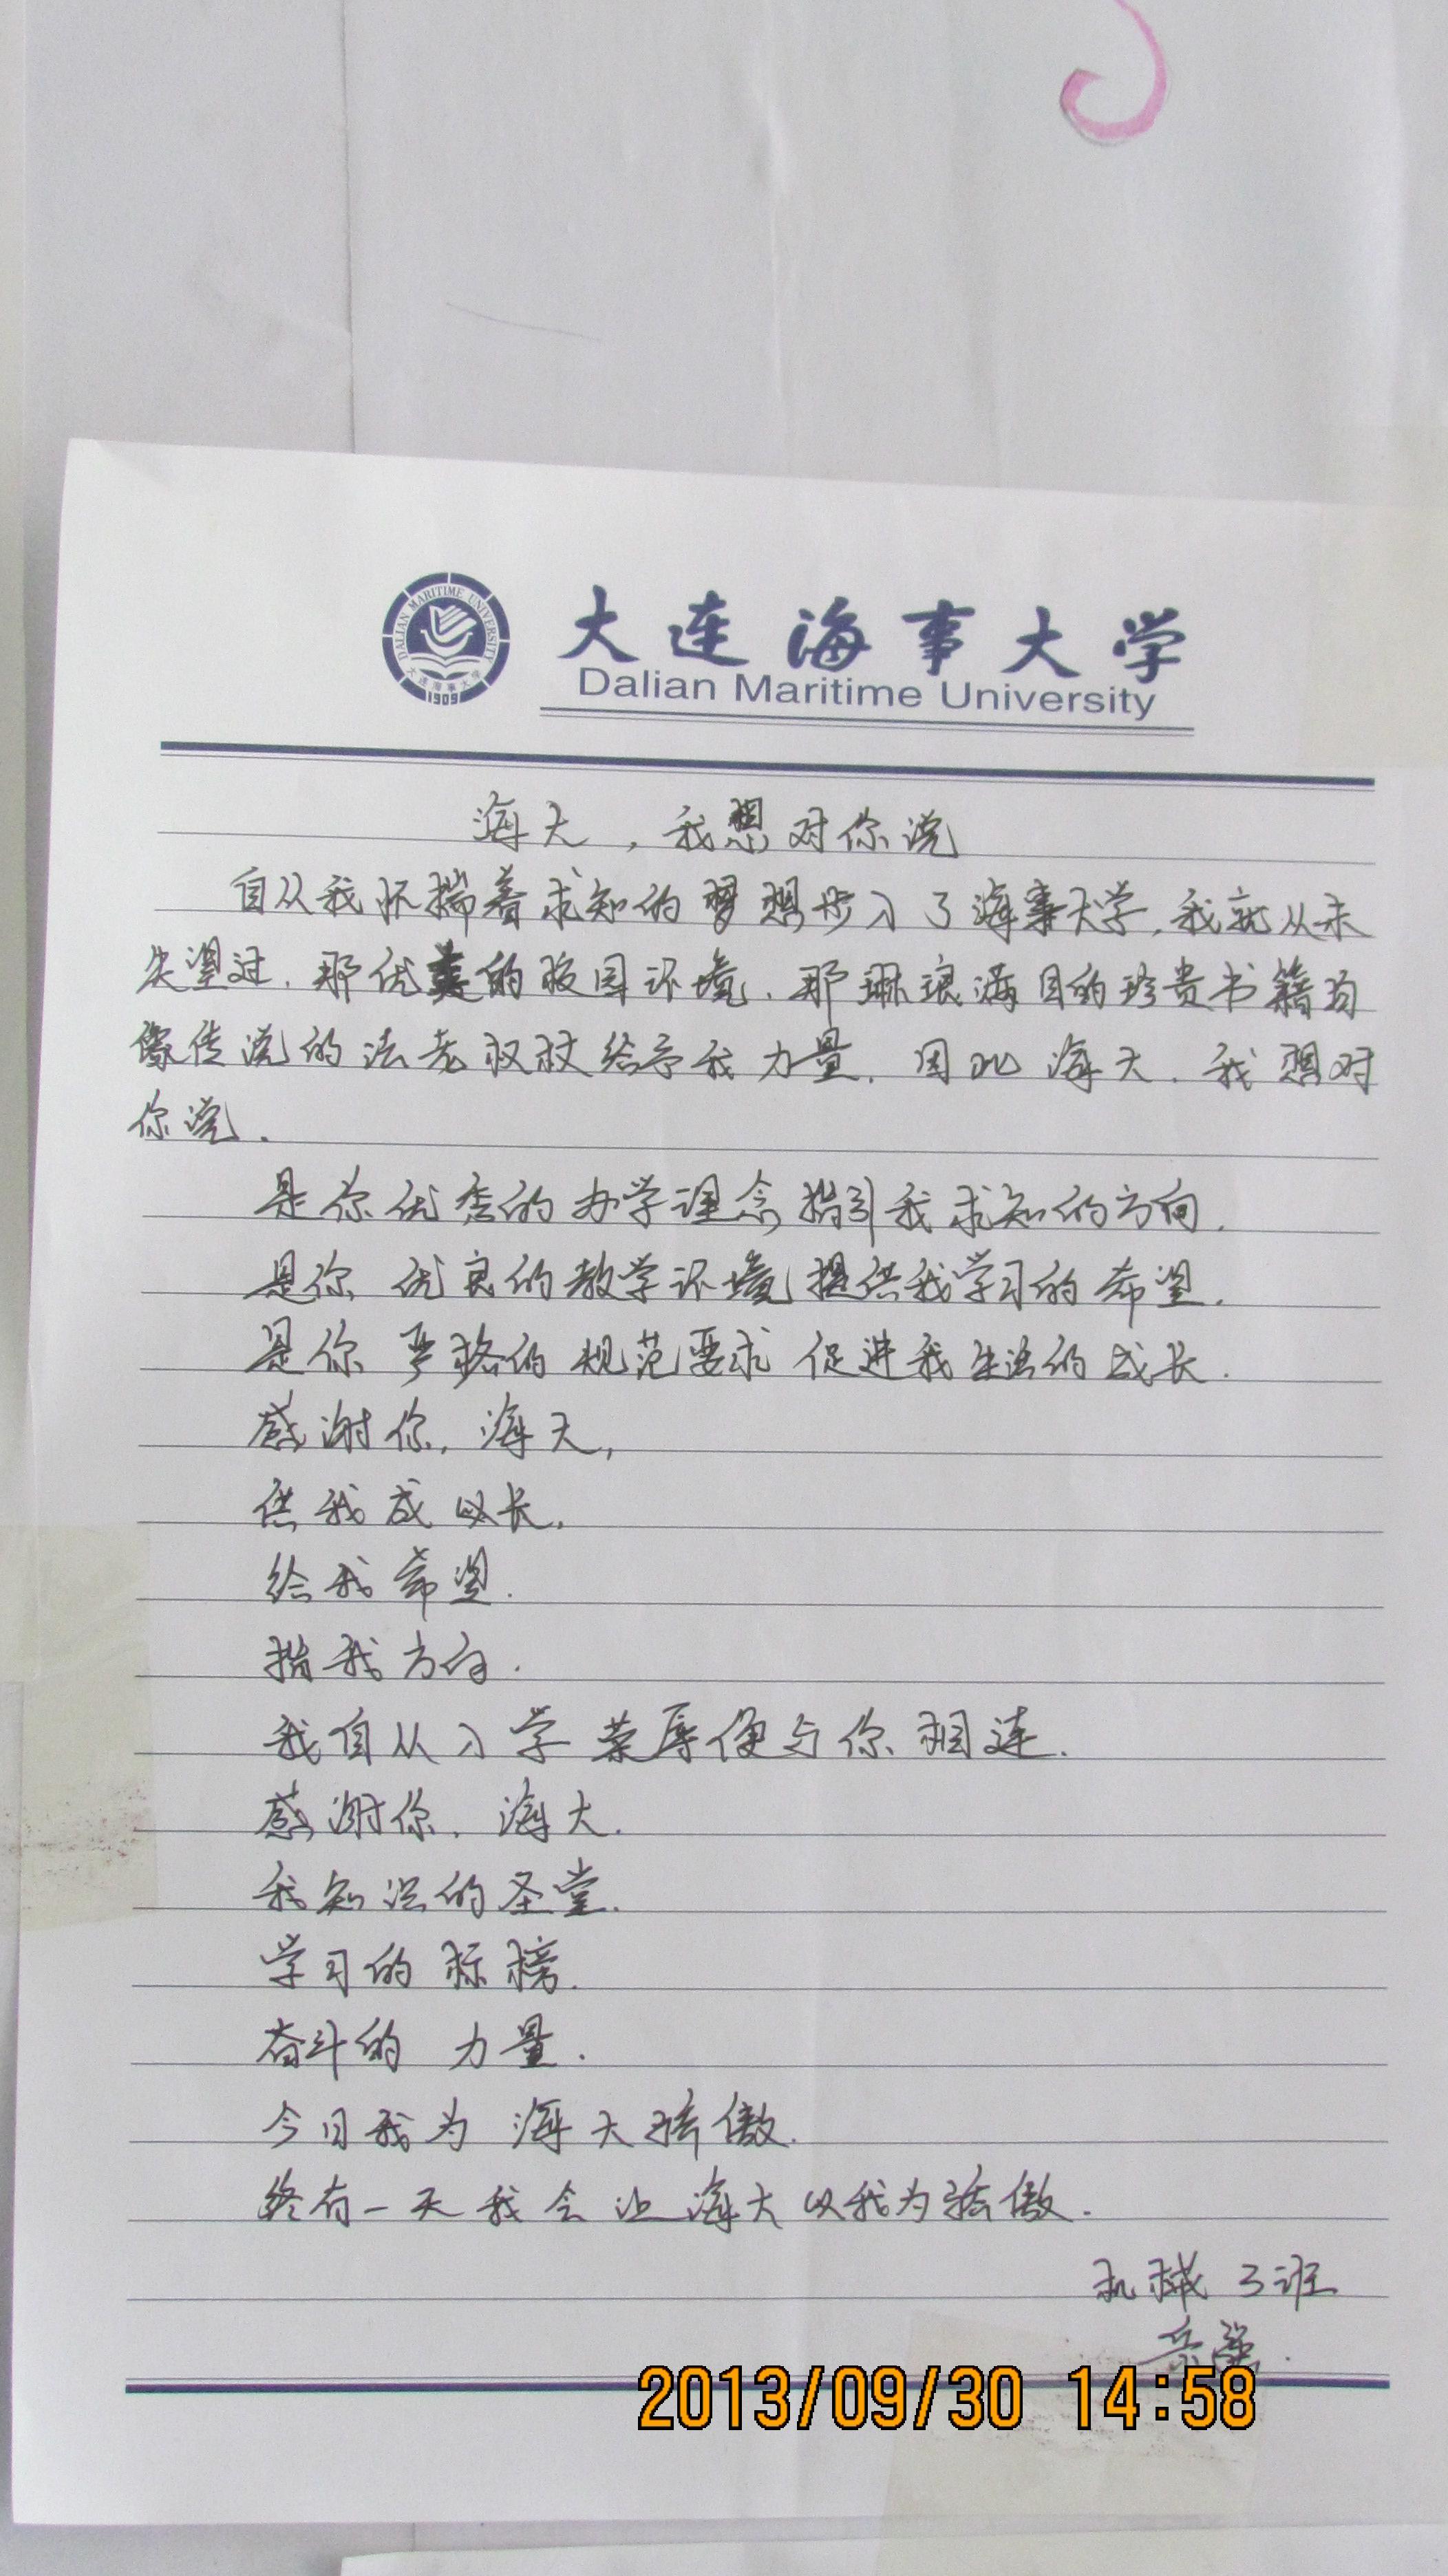 大连海事大学
Dalian Maritime University
DALIAN MARITIME UNIVERSITY
大连海事大学
1909
海大，我想对你说
自从我怀揣着求知的梦想步入了海事大学，我就从未
失望过．那优美的校园环境．那琳琅满目的珍贵书籍均
像传说的法老权杖给予我力量．因此海大．我想对
你说．
是你优秀的办学理念指引我求知的方向．
是你优良的教学环境提供我学习的希望．
是你严格的规范要求促进我生活的成长．
感谢你，海大，
供我成以长．
给我希望．
指我方向．
我自从入学荣辱便与你相连．
感谢你．海大．
我知识的圣堂．
学习的标榜．
奋斗的力量．
今日我为海大骄傲．
终有一天我会让海大以我为骄傲．
机械3班
2013/09/30 14:58